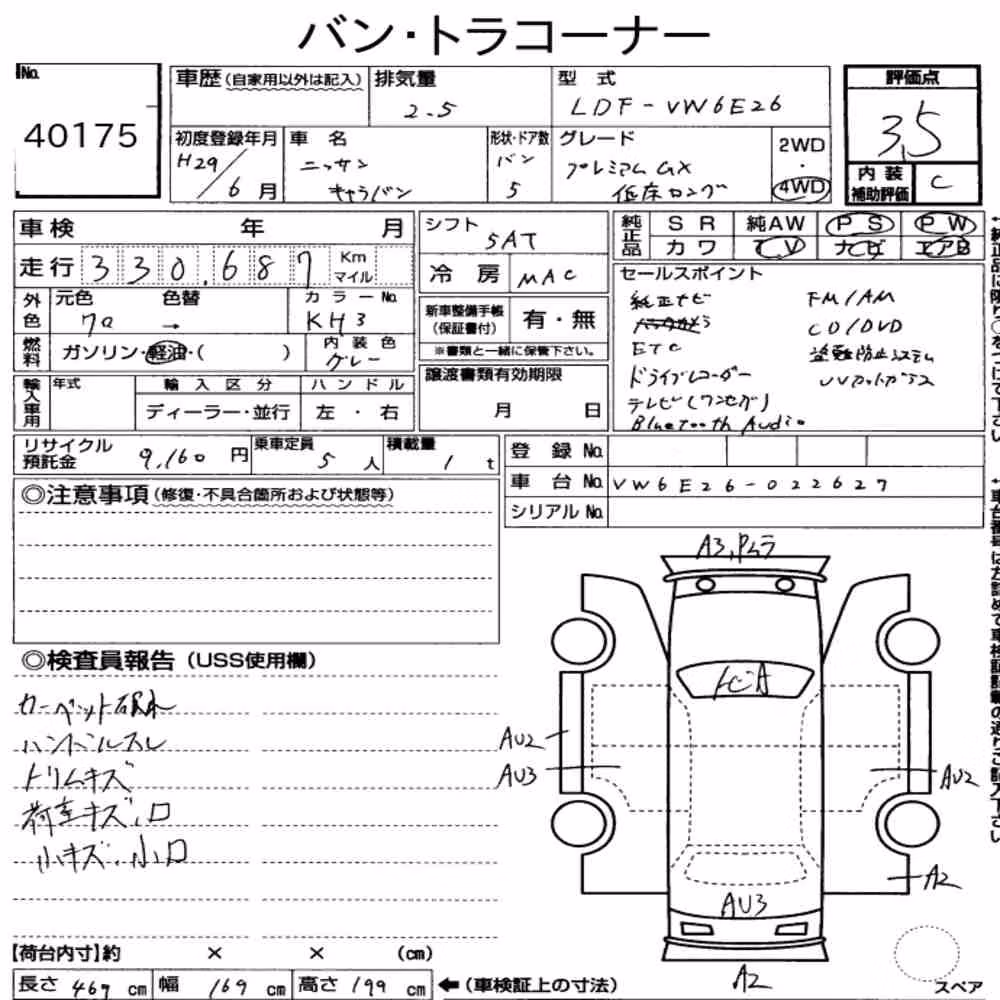 バン・トラコーナー
No.
40175
車歴 (自家用以外は記入)
排気量
2.5
型式
LDF-VW6E26
評価点
3.5
初度登録年月
H29/6月
車名
ニッサン
キャラバン
形状・ドア数
バン
5
グレード
プレミアムGX
低床ロング
2WD
・
4WD
内装
補助評価
C
車検 年 月
走行 330,687 Km
マイル
シフト
5AT
冷房 MAC
純正品
SR 純AW PS PW
カワ TV ナビ エアB
外色
元色 色替
クロ →
カラーNo.
KH3
燃料
ガソリン・軽油・( )
内装色
グレー
新車整備手帳
(保証書付)
有・無
※書類と一緒に保管下さい。
セールスポイント
純正ナビ
ETC
ドライブレコーダー
テレビ(ワンセグ)
Bluetooth Audio
FM/AM
CD/DVD
盗難防止システム
UVカットガラス
輸入車用
年式
輸入区分
ディーラー・並行
ハンドル
左・右
譲渡書類有効期限
月 日
リサイクル
預託金
9,160円
乗車定員
5人
積載量
1t
登録No.
車台No. VW6E26-022627
シリアルNo.
◎注意事項(修復・不具合箇所および状態等)
◎検査員報告(USS使用欄)
ハンドルスレ
トリムキズ
荷室キズ、凹
小キズ、小凹
A3,Pムラ
AU2
AU3
AU2
A2
AU3
A2
スペア
【荷台内寸】約 × × (cm)
長さ 469 cm 幅 169 cm 高さ 199 cm
←(車検証上の寸法)